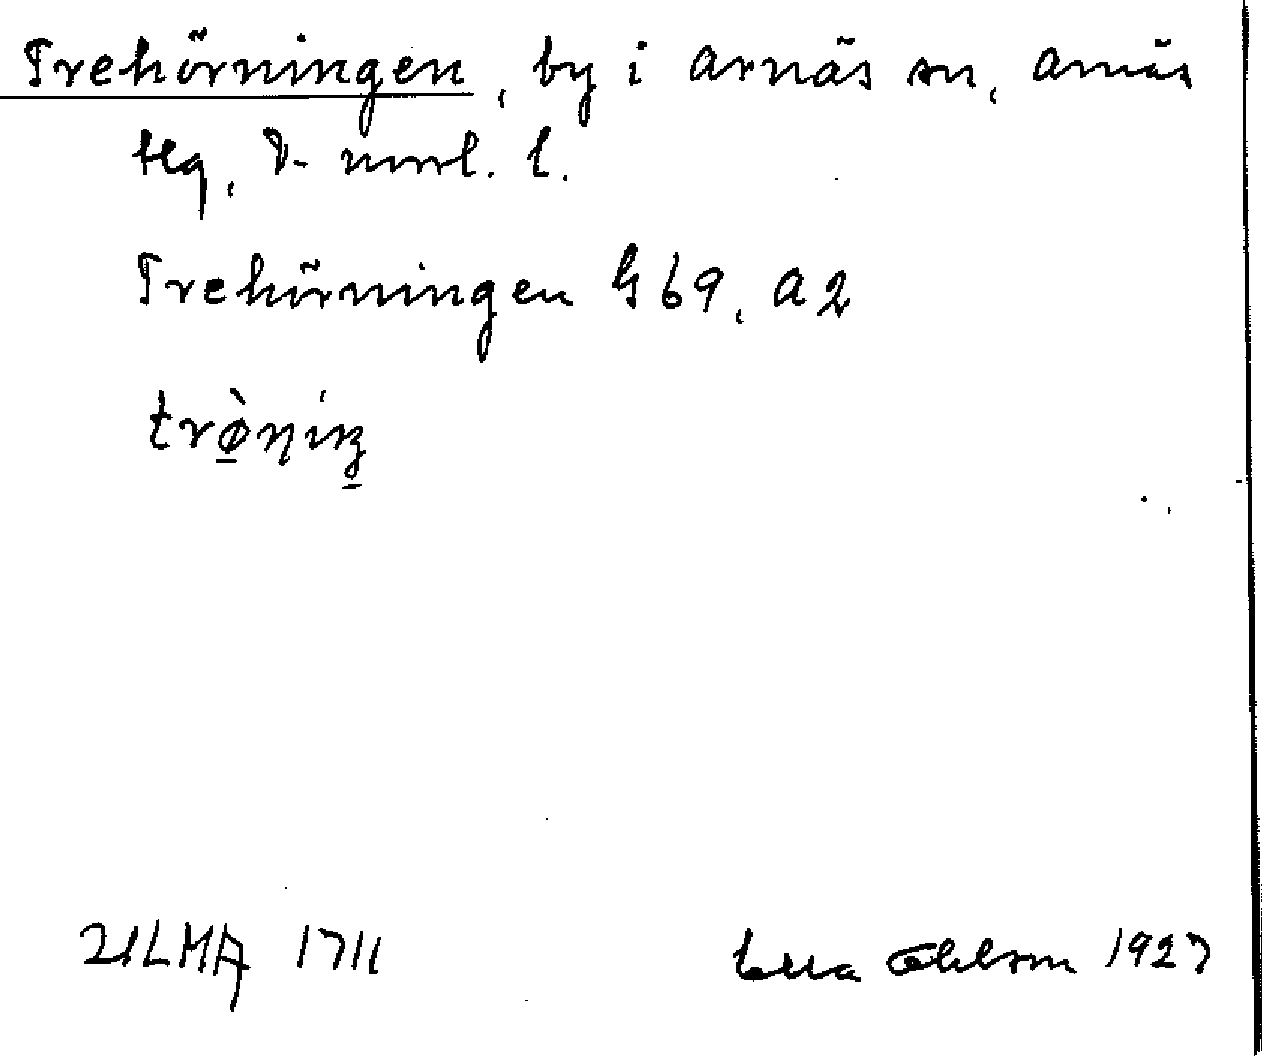 Trehörningen, by i Arnäs sn, Arnäs
tlg, V-norrl. l.
Trehörningen G69, A2
trø̀ṇiŋ
ULMA 1711
Ella Ohlson 1927